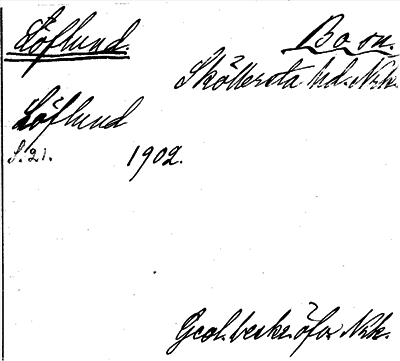 Löflund. Bo sn.
Sköllersta hd. Nrk.
Löflund
S. 21. 1902.
Geol. beskr. öfver Nrk.